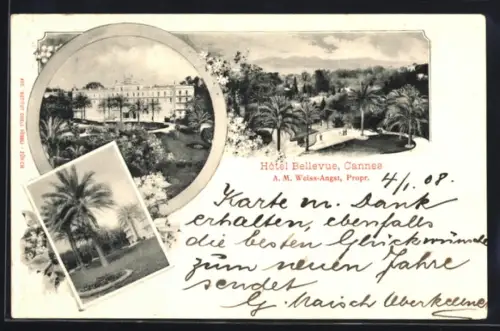 Hôtel Bellevue, Cannes
A. M. Weiss-Angst, Propr.
4/1. 08.
Karte m. Dank
erhalten, ebenfalls
die besten Glückwünsche
zum neuen Jahre
sendet
G. Maisch Oberkellner